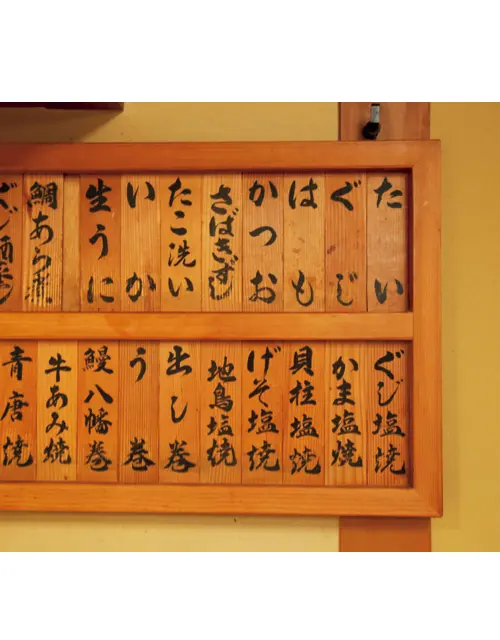 たい
ぐじ
はも
かつお
さばきずし
たこ洗い
いか
生うに
鯛あら煮
ぐじ酒蒸
ぐじ塩焼
かま塩焼
貝柱塩焼
げそ塩焼
地鳥塩焼
出し巻
う巻
鰻八幡巻
牛あみ焼
青唐焼